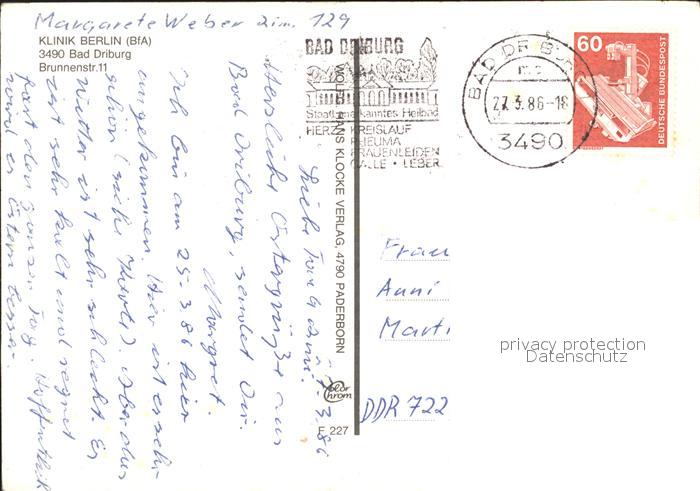 Margarete Weber Zim. 129
KLINIK BERLIN (BfA)
3490 Bad Driburg
Brunnenstr.11
BAD DRIBURG
Staatl. anerkanntes Heilbad
HERZ KREISLAUF
RHEUMA
FRAUENLEIDEN
GALLE • LEBER
BAD DRIBURG
27.3.86-18
3490
60
DEUTSCHE BUNDESPOST
27.3.86
Liebe Tante Anni!
Herzliche Ostergrüße aus
Bad Driburg, sendet Dir
Margret.
Ich bin am 25.3.86 hier
angekommen. Hier ist es sehr
schön (siehe Karte). Aber das
Wetter ist sehr schlecht. Es
ist sehr kalt und regnet
fast den ganzen Tag. Hoffentlich
wird es Ostern besser.
WOLFGANG HANS KLOCKE VERLAG, 4790 PADERBORN
Color
chrom
F 227
Frau
Anni
Marti
DDR 722
privacy protection
Datenschutz